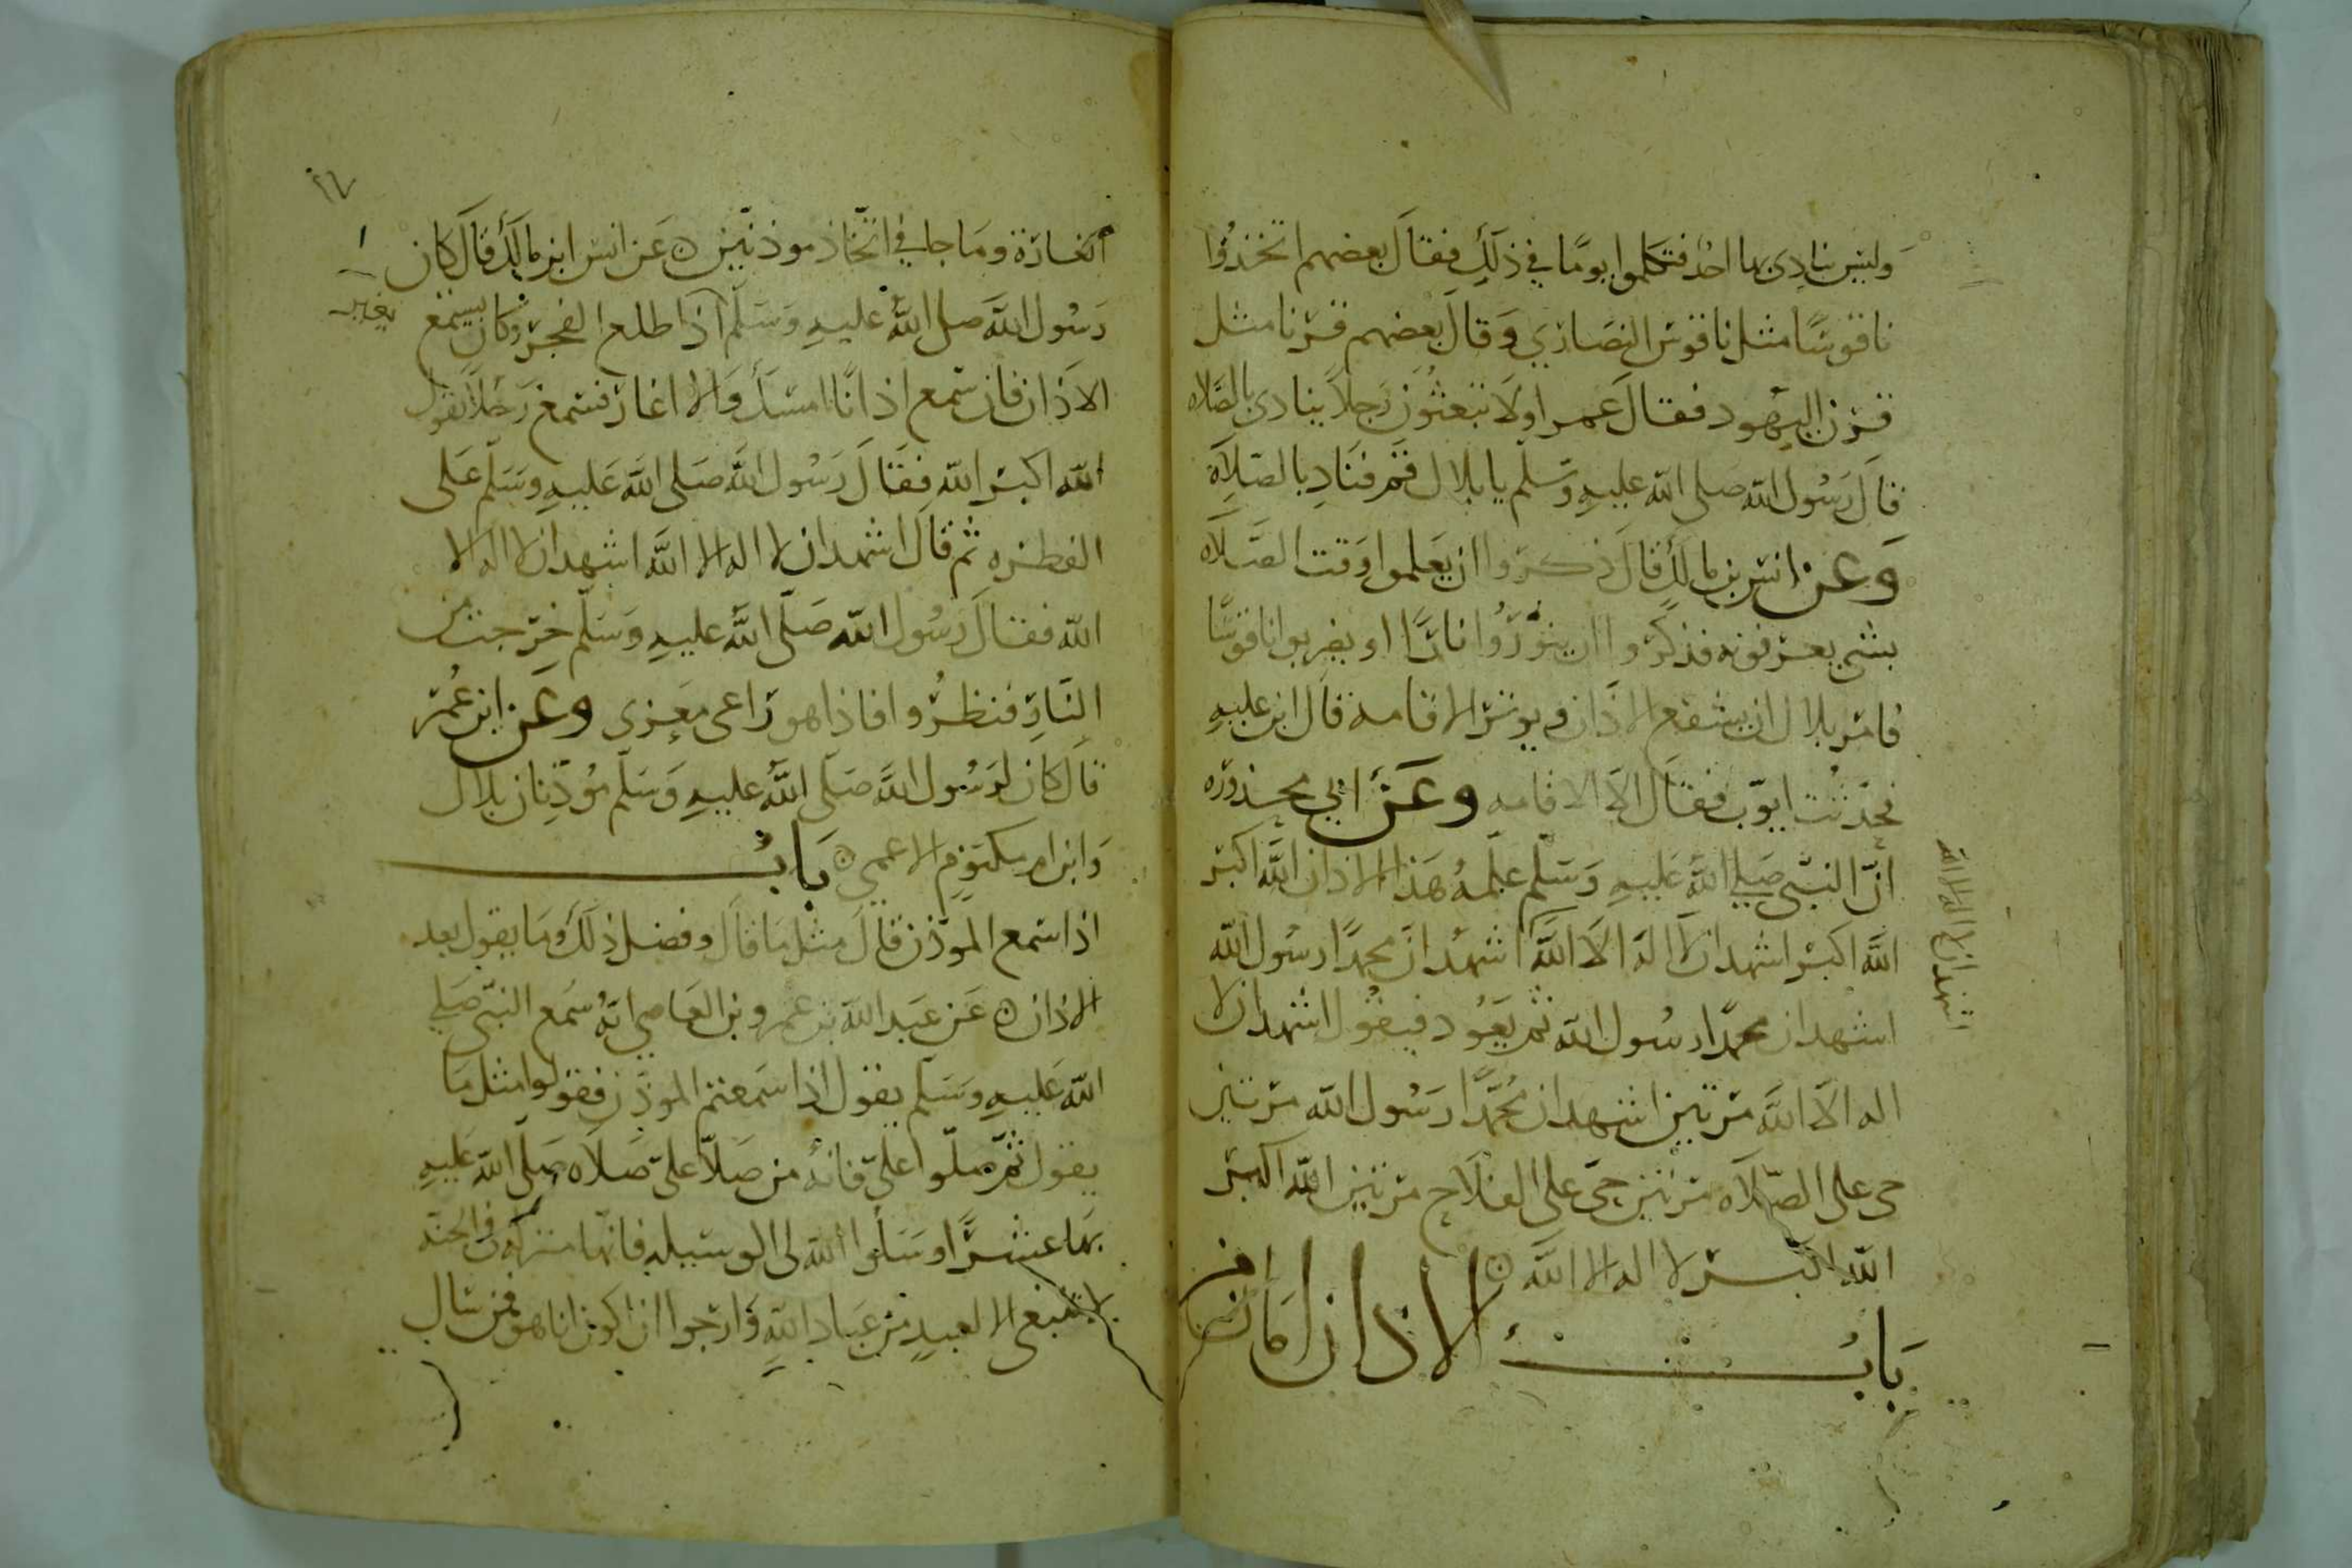 وليس ينادي بها احد فتكلموا يومًا في ذلك فقال بعضهم اتخذوا
ناقوسًا مثل ناقوس النصاري وقال بعضهم قرنا مثل
قرن اليهود فقال عمر اولا تبعثون رجلا ينادي بالصلاه
قال رسول الله صلى الله عليه وسلم يا بلال قم فناد بالصلاة
وعن انس بن مالك قال ذكروا ان يعلموا وقت الصلاه
بشي يعرفونه فذكروا ان ينوروا نارًا او يضربوا ناقوسًا
فامر بلال ان يشفع الاذان ويوتر الاقامه قال ابن عليه
فحدثت ايوب فقال الا الاقامه وعن ابي محذوره
ان النبي صلي الله عليه وسلم علمه هذا الاذان الله اكبر
الله اكبر اشهد ان لا اله الا الله اشهد ان محمدًا رسول الله
اشهد ان محمدا رسول الله ثم يعود فيقول اشهد ان لا
اله الا الله مرتين اشهد ان محمدًا رسول الله مرتين
حي على الصلاه مرتين حي على الفلاح مرتين الله اكبر
الله اكبر لا اله الا الله
باب الاذان امان من
اشهد ان لا اله الا الله
٢٦
الغارة وما جا في اتخاذ موذنين عن انس ابن مالك قال كان
رسول الله صلى الله عليه وسلم اذا طلع الفجر وكان يسمع
يغير
الاذان فان سمع اذانًا امسك والا اغار فسمع رجلا يقول
الله اكبر الله فقال رسول الله صلى الله عليه وسلم على
الفطره ثم قال اشهد ان لا اله الا الله اشهد ان لا اله الا
الله فقال رسول الله صلى الله عليه وسلم خرجت من
النار فنظروا فاذا هو راعي معزى وعن ابن عمر
قال كان لرسول الله صلى الله عليه وسلم مؤذنان بلال
وابن ام مكتوم الاعمي باب
اذا سمع الموذن قال مثل ما قال وفضل ذلك وما يقول بعد
الاذان عن عبد الله بن عمرو بن العاصي انه سمع النبي صلي
الله عليه وسلم يقول اذا سمعتم الموذن فقولوا مثل ما
يقول ثم صلوا علي فانه من صلا علي صلاه صلى الله عليه
بها عشرًا وسلوا الله لي الوسيله فانها منزله في الجنه
لا تنبغي الا لعبد من عباد الله وارجوا ان اكون انا هو فمن سال